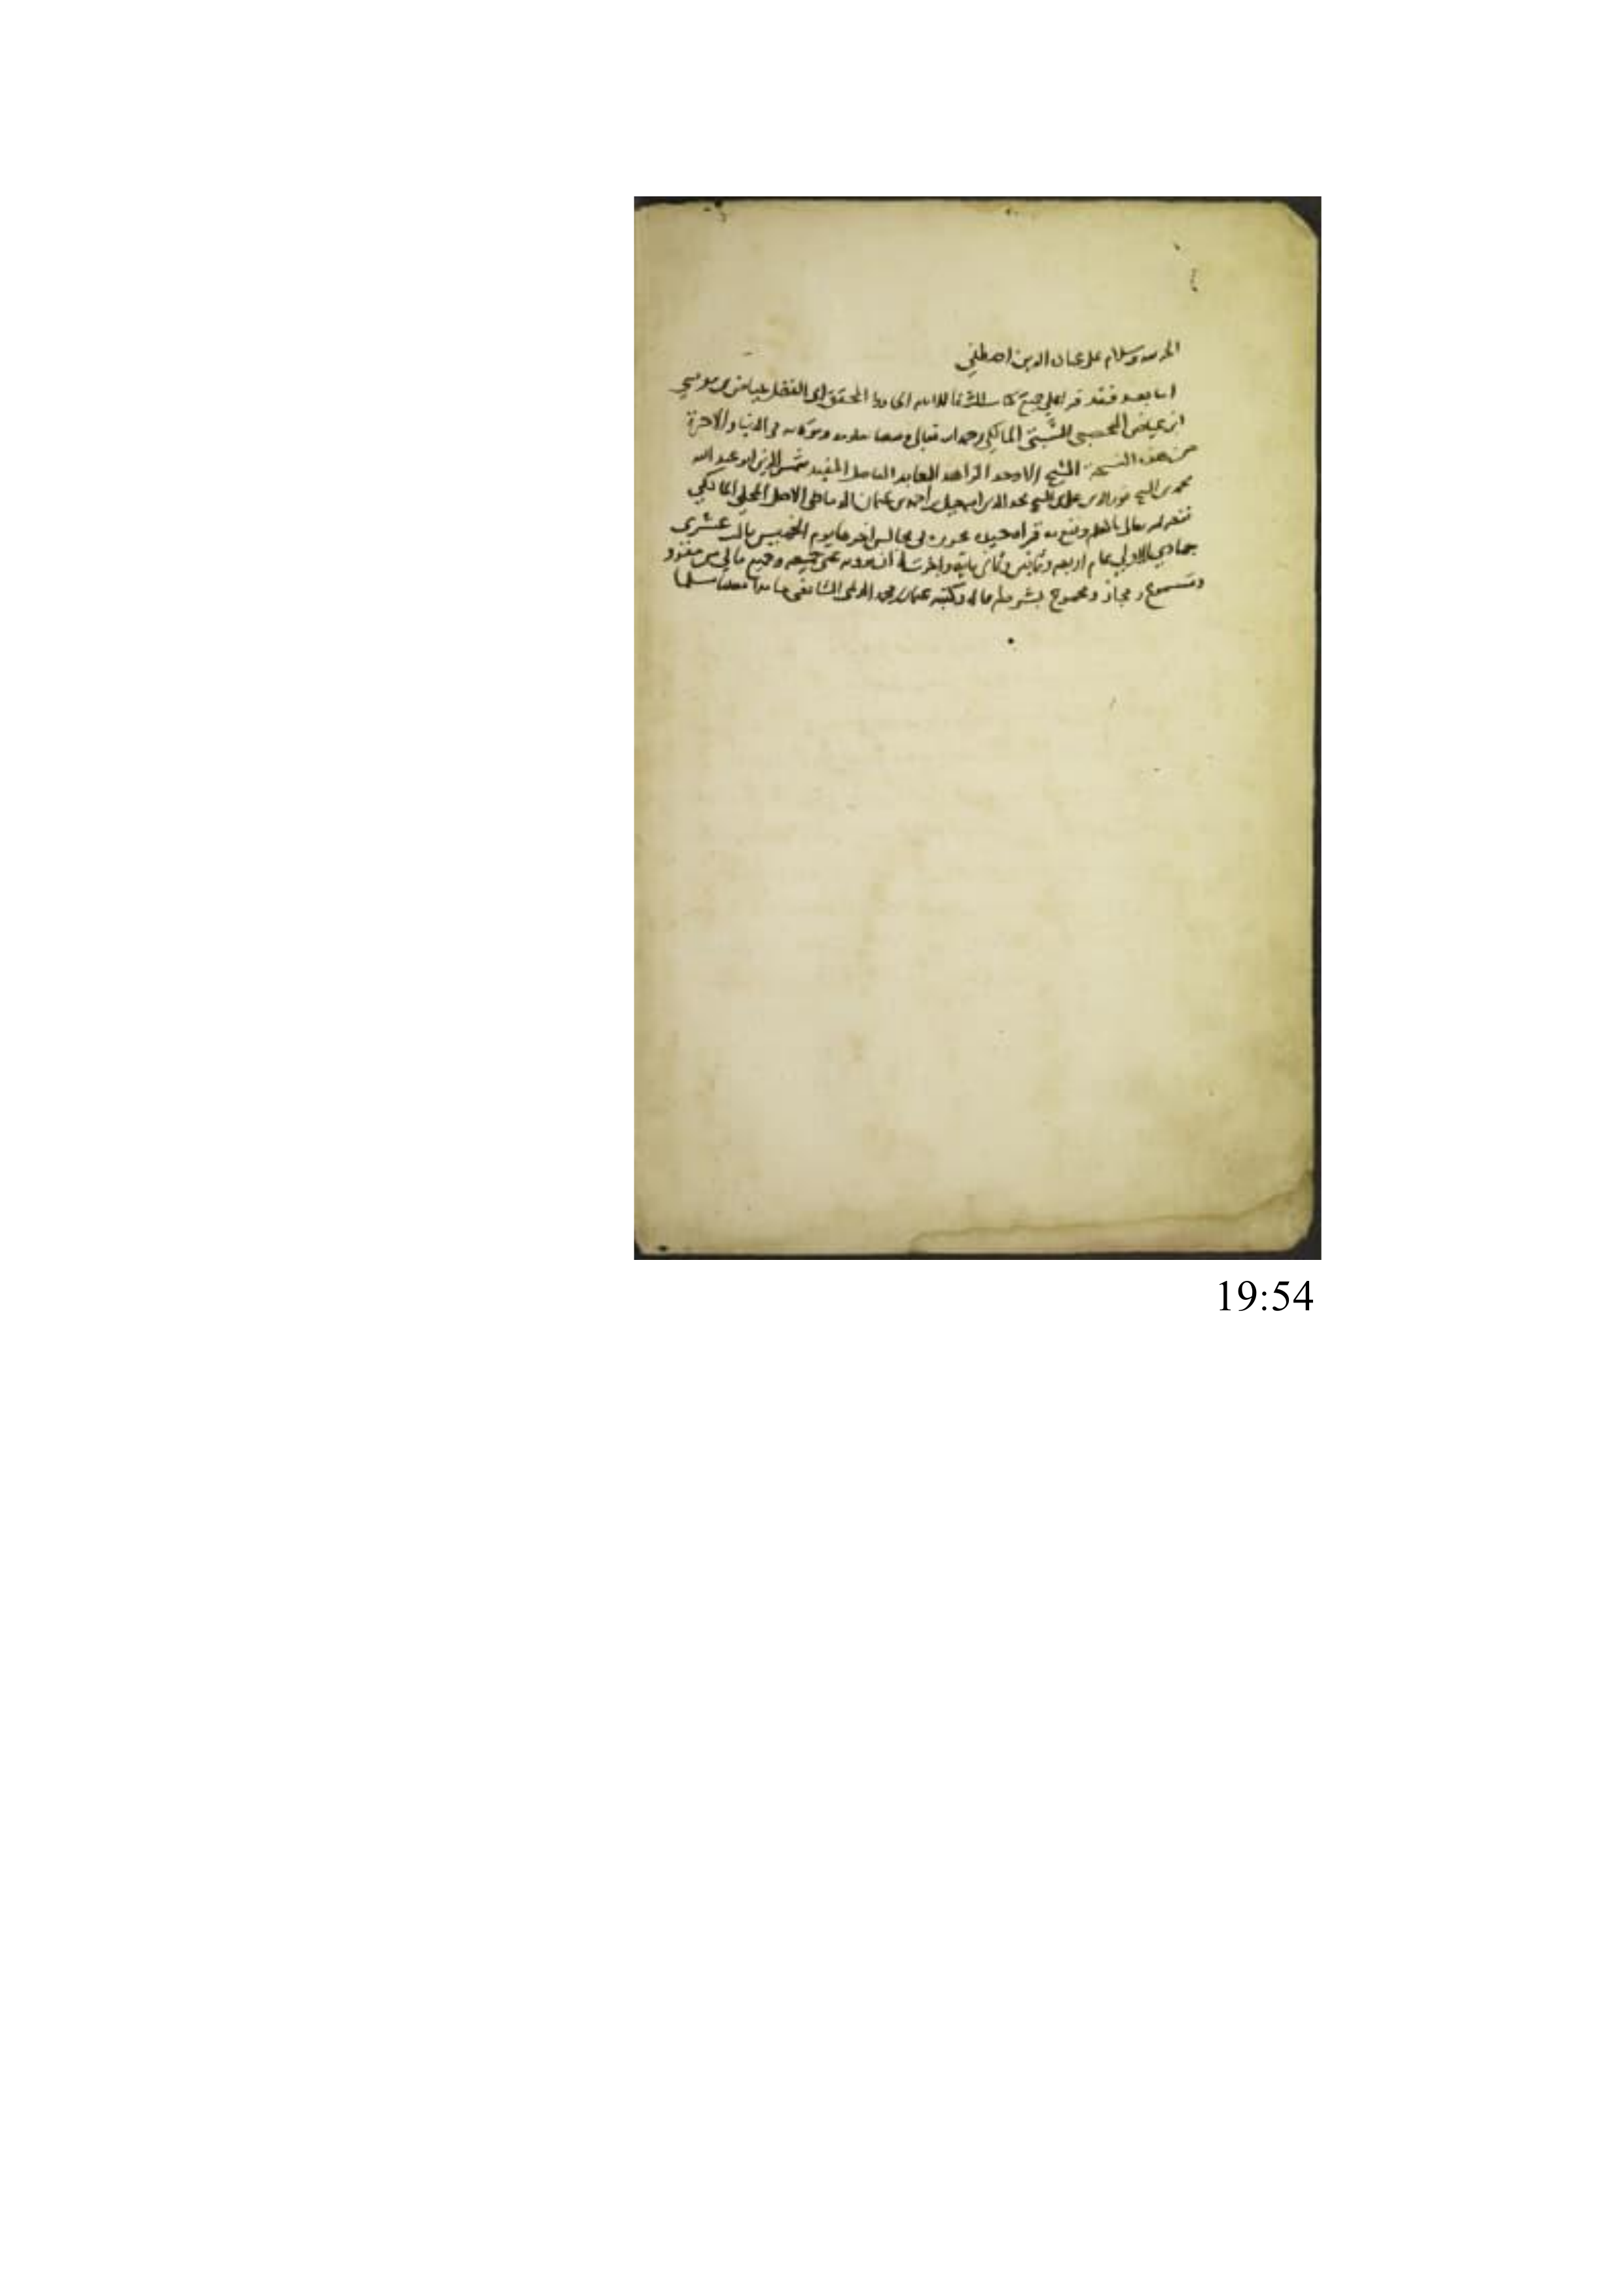 الحمد لله وسلام على عباده الذين اصطفى
اما بعد فقد قرا علي جميع كتاب الشفا للامام الحافظ المحقق ابي الفضل عياض بن موسى
ابن عياض اليحصبي السبتي المالكي رحمه الله تعالى ونفعنا بعلومه وبركاته في الدنيا والاخرة
من هذه النسخة الشيخ الاوحد الزاهد العابد الفاضل المفيد شمس الدين ابو عبد الله
محمد بن الشيخ نور الدين علي بن الشيخ مجد الدين اسمعيل بن احمد بن عثمان الدمياطي الاصل المحلي المالكي
نفعه الله تعالى بالعلم ونفع به قراة حسنة في مجالس اخرها يوم الخميس ثالث عشرى
جمادى الاولى عام اربعه وثمانين وثمان ماية واجزت له ان يرويه عني جميعه وجميع مالي من مقرو
ومسموع ومجاز ومجموع بشرطه قاله وكتبه عثمان بن محمد الديمي الشافعي حامدا مصليا مسلما
19:54